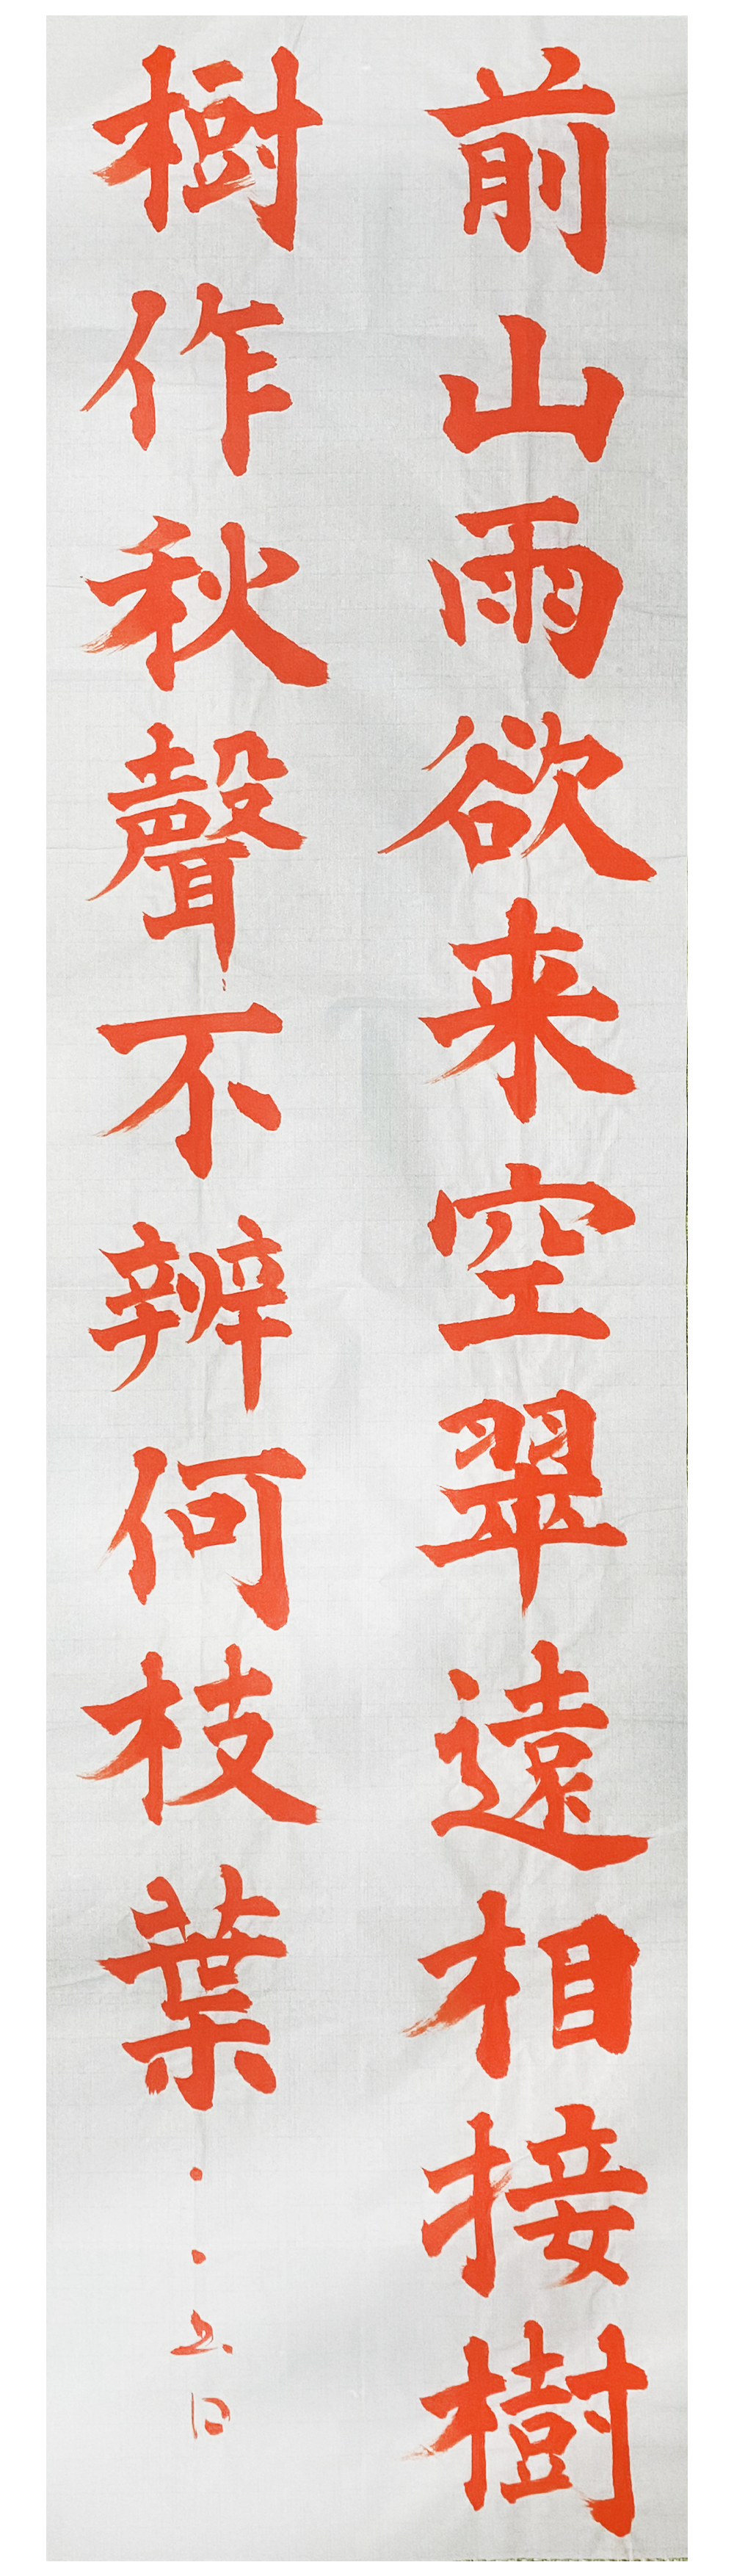 前山雨欲来空翠遠相接樹
樹作秋聲不辨何枝葉